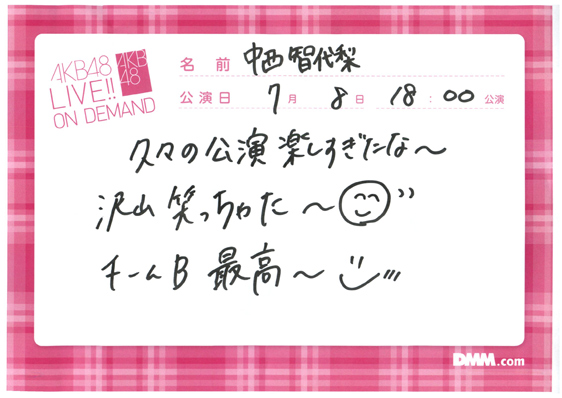 AKB48
LIVE!!
ON DEMAND
AKB
48
名前 中西智代梨
公演日 7月 8日 18:00 公演
久々の公演楽しすぎたな〜
沢山笑っちゃた〜
チームB 最高〜
DMM.com